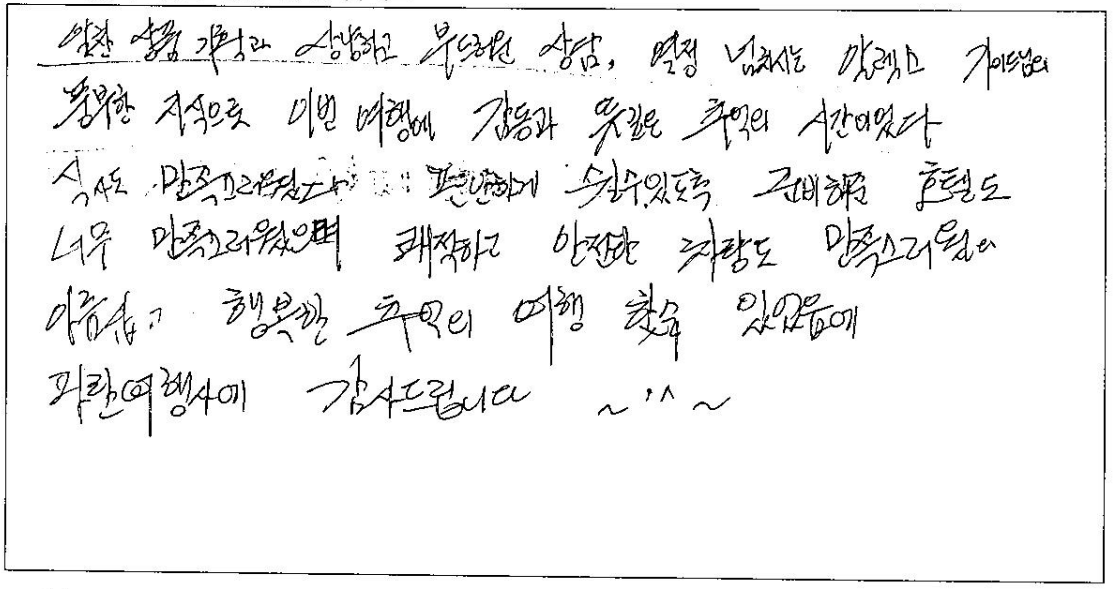 알찬 상품 기획과 상냥하고 부드러운 상담, 열정 넘치시는 알렉스 가이드님의
풍부한 지식으로 이번 여행에 감동과 뜻깊은 추억의 시간이었다
식사도 만족스러웠으나 편안하게 쉴수있도록 준비해준 호텔도
너무 만족스러웠으며 쾌적하고 안전한 차량도 만족스러웠고
아름답고 행복한 추억의 여행 할수 있었음에
파란여행사에 감사드립니다 ~^^~